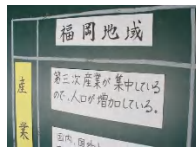 福岡地域
産業
第三次産業が集中している
ので、人口が増加している。